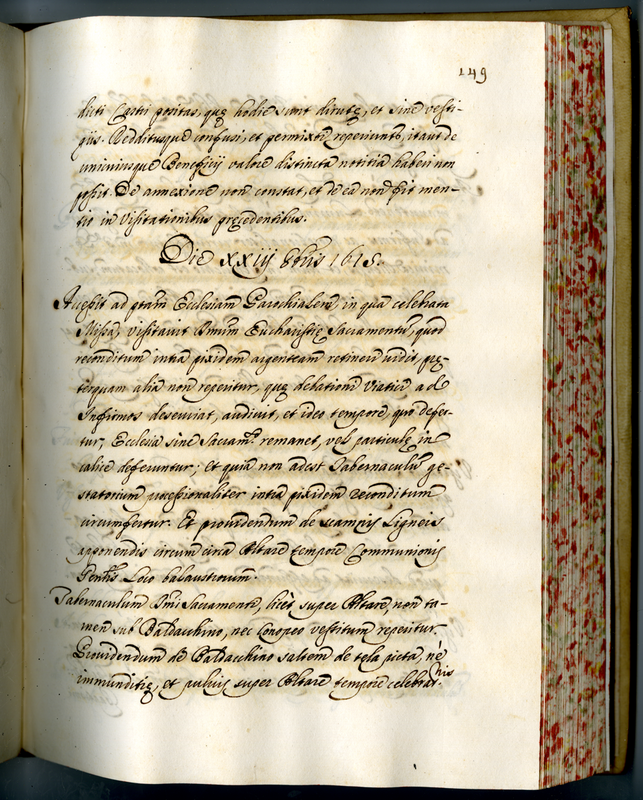 149
dicti Castri positas, quę hodie sunt dirutę, et sine vesti-
gijs. Redditusque confusi, et permixti reperiunt˜, itaut de
uniuscuiusque Beneficij valore distincta notitia haberi non
possit. De annexione non constat, et de ea non fit men-
tio in Visitationibus pręcedentibus.
Die XXiij 8bris 1615.
Accessit ad Ecclesiam Parochialem, in qua celebrata
Missa, visitavit Eucharistię Sacramentũ, quod
reconditum intra pixidem argenteam retineri vidit, pre-
terquam alia non reperitur, quę delationi Viatici ad
Infirmos deserviat, audivit, et ideo tempore, quo defer-
tur, Ecclesia sine Sacram.to remanet, vel particulę in
calice deferuntur; et quia non adest Tabernaculũ ge-
statorium processionaliter intra pixidem reconditum
circumfertur. Et providendum de scamnis Ligneis
apponendis circum circa Altare tempore Communionis
Loco balaustrorum.
Tabernaculum Sacramenti, licet super Altare, non ta-
men sub Baldacchino, nec Conopeo vestitum reperitur
Providendum de Baldacchino saltem de tela picta, nè
immunditię, et pulvis super Altare tempore celebrat.nis